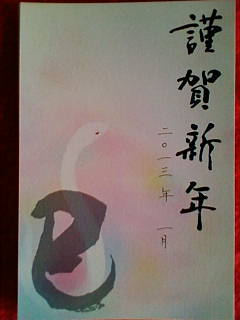 謹賀新年
二〇一三年 一月
巳